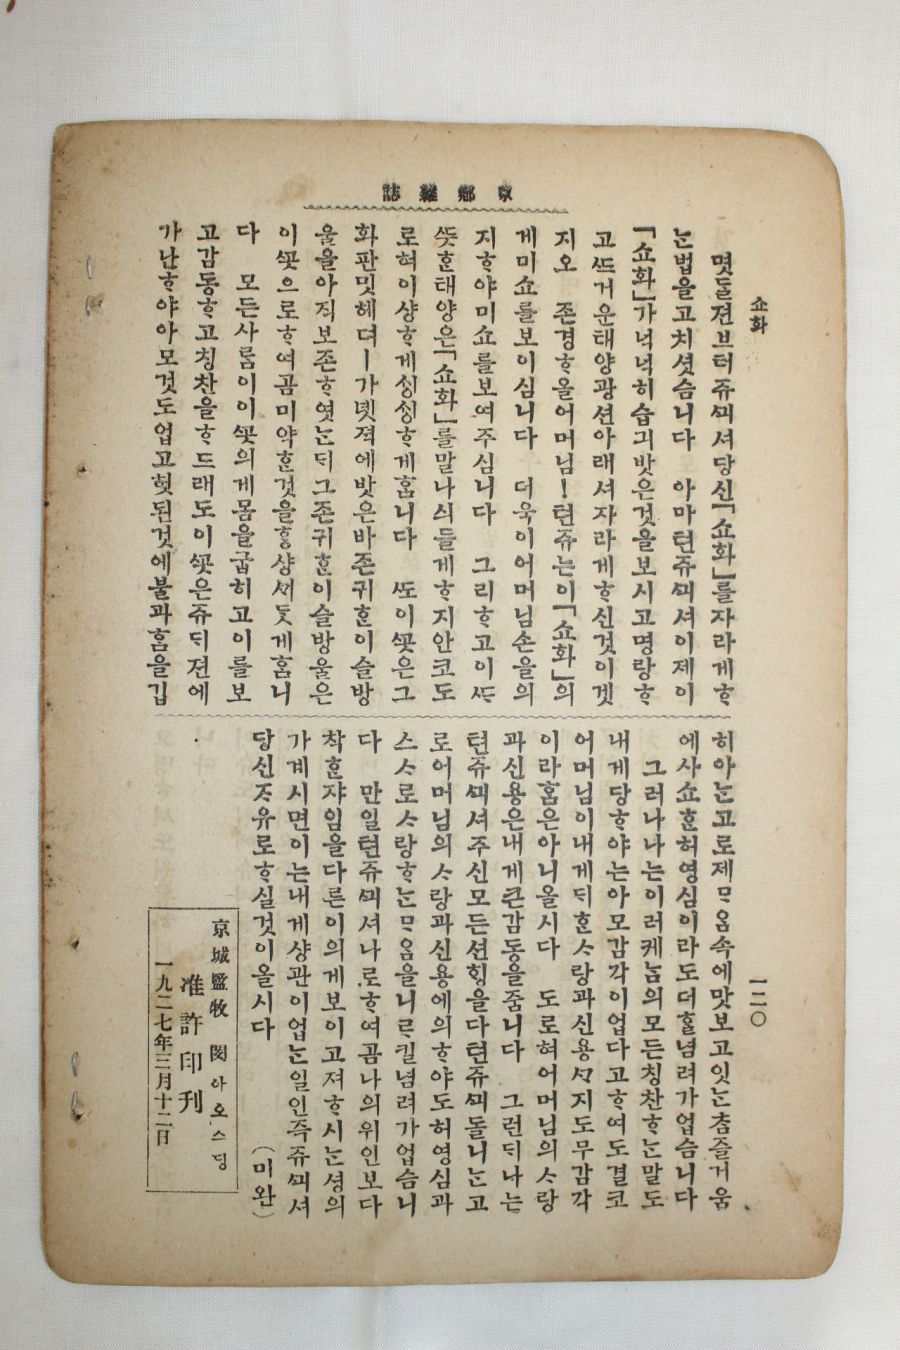 京鄕雜誌
쇼화
一二〇
몃ᄃᆞᆯ젼브터쥬ᄭᅴ셔당신「쇼화」를자라게ᄒᆞ
ᄂᆞᆫ법을고치셧슴니다 아마텬쥬ᄭᅴ셔이제이
「쇼화」가넉넉히습긔밧은것을보시고명랑ᄒᆞ
고ᄯᅳ거운태양광션아래셔자라게ᄒᆞ신것이겟
지오 존경ᄒᆞ올어머님! 텬쥬는이「쇼화」의
게미쇼를보이심니다 더욱이어머님손을의
지ᄒᆞ야미쇼를보여주심니다 그리ᄒᆞ고이ᄯᅡ
ᄯᅳᆺᄒᆞᆫ태양은「쇼화」를말나
들게ᄒᆞ지안코도
로혀이샹ᄒᆞ게싱싱ᄒᆞ게홈니다 ᄯᅩ이ᄭᅩᆺ은그
화판밋헤뎌ㅣ가녯젹에밧은바존귀ᄒᆞᆫ이슬방
울을아직보존ᄒᆞ엿ᄂᆞᆫᄃᆡ그존귀ᄒᆞᆫ이슬방울은
이ᄭᅩᆺ으로ᄒᆞ여곰미약ᄒᆞᆫ것을ᄒᆞᆼ샹ᄭᆡᄃᆞᆺ게홈니
다 모든사ᄅᆞᆷ이이ᄭᅩᆺ의게몸을굽히고이를보
고감동ᄒᆞ고칭찬을ᄒᆞ드래도이ᄭᅩᆺ은쥬ᄃᆡ젼에
가난ᄒᆞ야아모것도업고헛된것에불과홈을깁
히아ᄂᆞᆫ고로제ᄆᆞ음속에맛보고잇ᄂᆞᆫ참즐거움
에사쇼ᄒᆞᆫ허영심이라도더ᄒᆞᆯ념려가업슴니다
그러나나는이러케ᄂᆞᆷ의모든칭찬ᄒᆞᄂᆞᆫ말도
내게당ᄒᆞ야는아모감각이업다고ᄒᆞ여도결코
어머님이내게ᄃᆡᄒᆞᆫᄉᆞ랑과신용ᄭᆞ지도무감각
이라홈은아니올시다 도로혀어머님의ᄉᆞ랑
과신용은내게큰감동을줌니다 그런ᄃᆡ나는
텬쥬ᄭᅴ셔주신모든션힝을다텬쥬ᄭᅴ돌니ᄂᆞᆫ고
로어머님의ᄉᆞ랑과신용에의ᄒᆞ야도허영심과
스ᄉᆞ로ᄉᆞ랑ᄒᆞᄂᆞᆫᄆᆞ음을니ᄅᆞ킬념려가업슴니
다 만일텬쥬ᄭᅴ셔나로ᄒᆞ여곰나의위인보다
착ᄒᆞᆫ쟈임을다른이의게보이고져ᄒᆞ시ᄂᆞᆫ셩의
가계시면이는내게샹관이업ᄂᆞᆫ일인즉쥬ᄭᅴ셔
당신ᄌᆞ유로ᄒᆞ실것이올시다 (미완)
京城監牧 閔아오스딩
准許印刊
一九二七年三月十二日